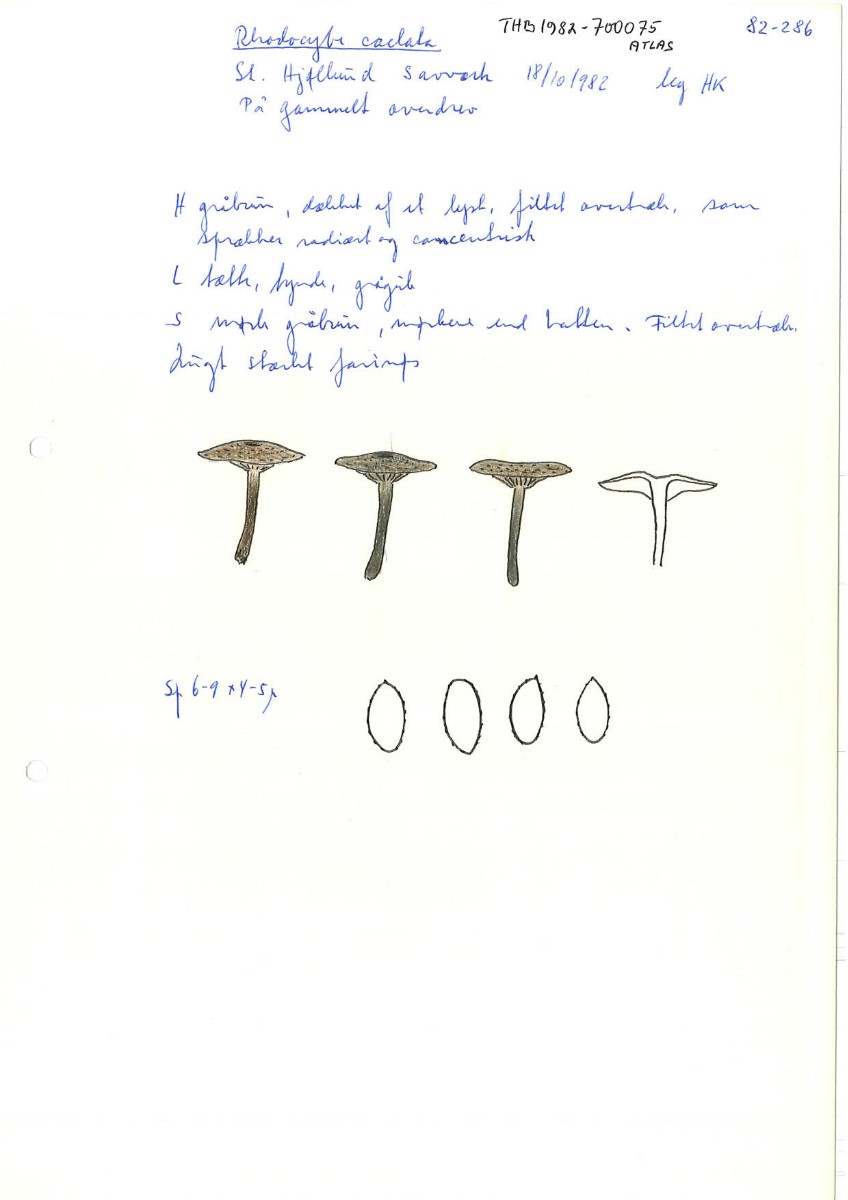 Rhodocybe caelata
THB1982-700075
ATLAS
82-286
St. Hjøllund Savværk 18/10/1982 leg HK
På gammelt overdrev
H gråbrun, dækket af et lyst, filtet overtræk, som
sprækker radiært og concentrisk
L tætte, tynde, grågule
S mørk gråbrun, mørkere end hatten. Filtet overtræk.
Lugt stærkt farinøs
Sp 6-9 x 4-5µ